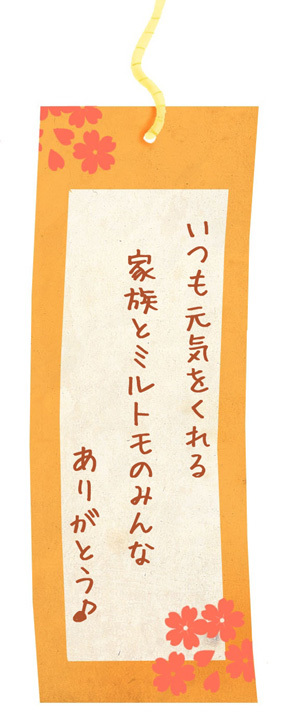 いつも元気をくれる
家族とミルトモのみんな
ありがとう♪